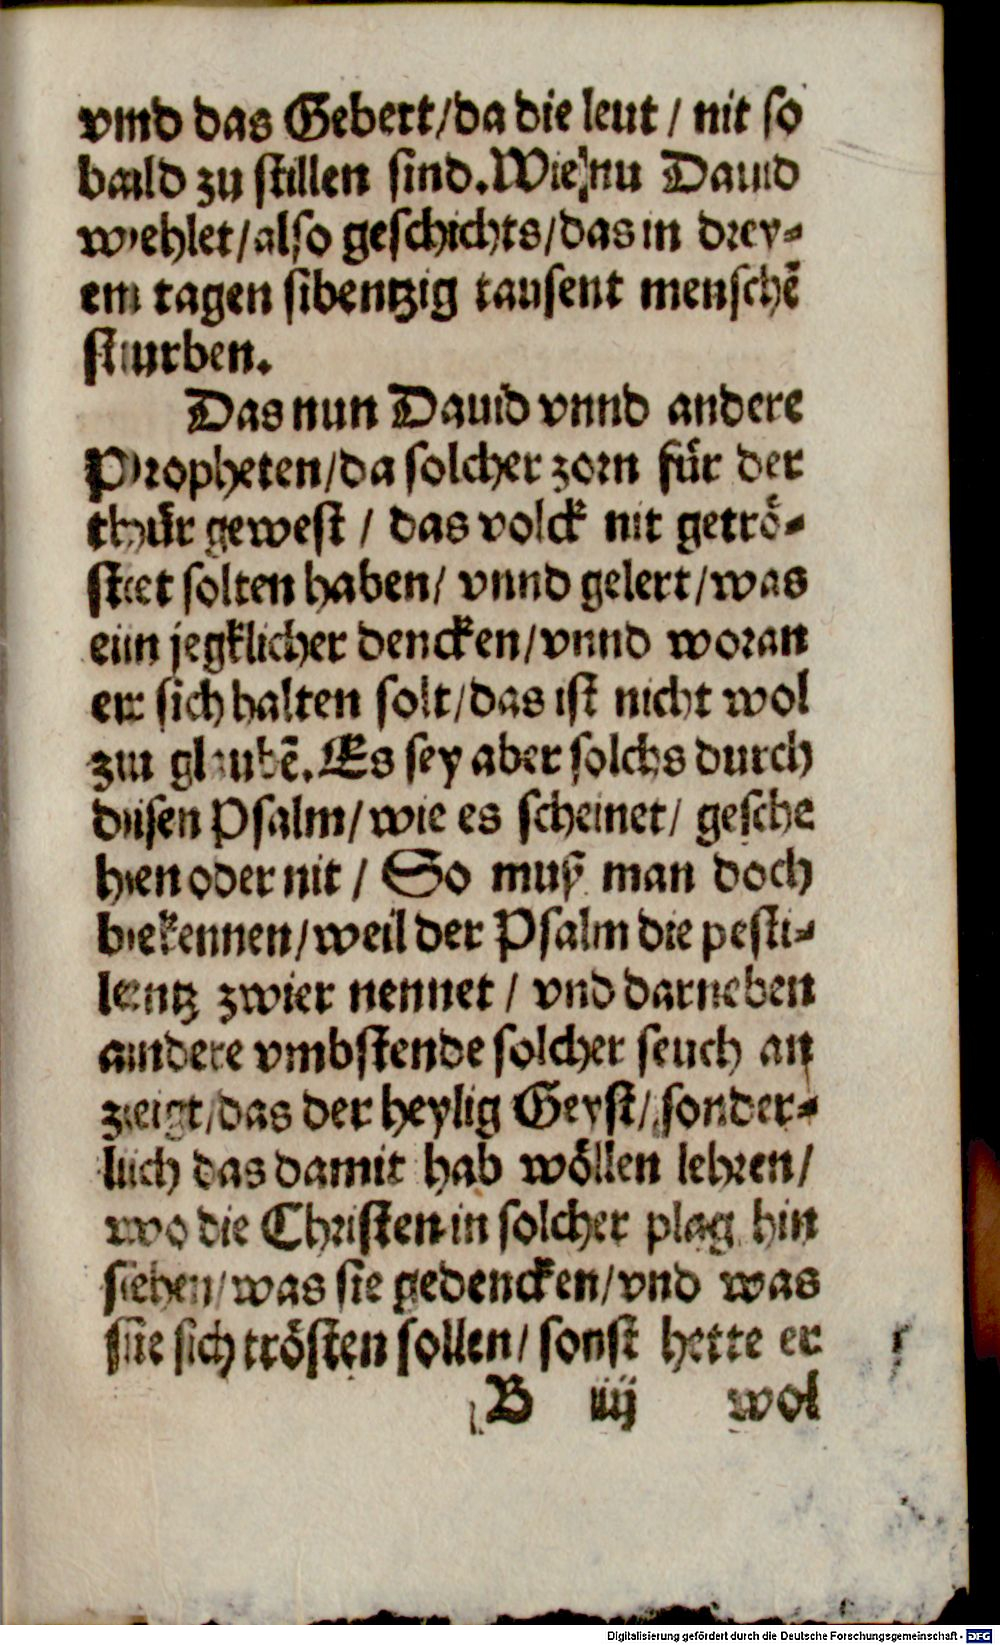 vnd das Gebett/da die leut / nit so
bald zu stillen sind. Wie nu Dauid
wehlet/also geschichts/das in drey-
en tagen sibentzig tausent menschē
sturben.
Das nun Dauid vnnd andere
Propheten/da solcher zorn für der
thür gewest / das volck nit getrö-
stet solten haben/ vnnd gelert/was
ein jegklicher dencken/vnnd woran
er sich halten solt/das ist nicht wol
zu glaubē. Es sey aber solchs durch
disen Psalm/wie es scheinet/ gesche
hen oder nit / So muß man doch
bekennen/weil der Psalm die pesti-
lentz zwier nennet / vnd darneben
andere vmbstende solcher seuch an
zeigt/das der heylig Geyst/sonder-
lich das damit hab wöllen lehren/
wo die Christen in solcher plag hin
sehen/was sie gedencken/vnd was
sie sich trösten sollen/ sonst hette er
B iiij wol
Digitalisierung gefördert durch die Deutsche Forschungsgemeinschaft - DFG